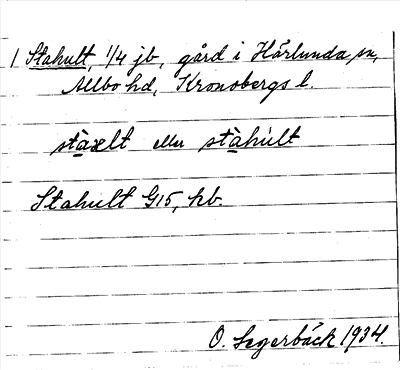 1 Stahult, 1/4 jb, gård i Härlunda sn,
Allbo hd, Kronobergs l.
stàxlt eller stàhult
Stahult G15, hb.
O. Segerbäck 1934.